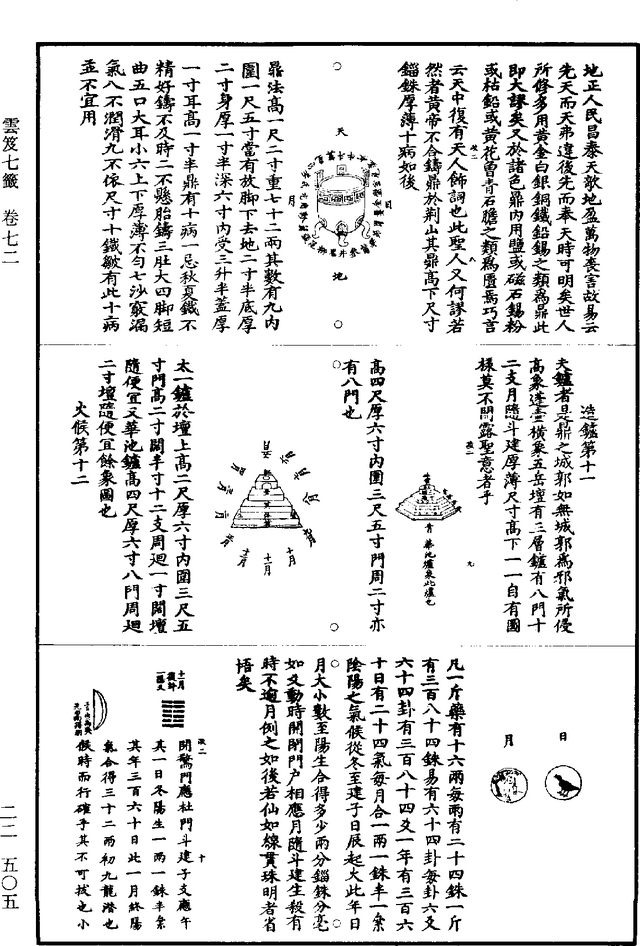 雲笈七籤 卷七二
地正人民昌泰天歌地盈萬物喪言故易云
先天而天弗違後先而奉天時可明矣世人
所修多用黃金白銀銅鐵鉛錫之類爲鼎此
即大謬矣又於諸色鼎內用鹽或磁石錫粉
或枯鉛或黃花曾青石膽之類爲匱焉巧言
云天中復有天人飾詞也此聖人又何謬若
然者黃帝不合鑄鼎於荊山其鼎高下尺寸
錙銖厚薄十病如後
天
地
月
鼎法高一尺二寸重七十二兩其數有九內
圍一尺五寸當有放脚下去地二寸半底厚
二寸身厚一寸半深六寸內受三升半蓋厚
一寸耳高一寸半鼎有十病一忌秋夏鐵不
精好鑄不及時二不懸胎鑄三肚大四脚短
曲五口大耳小六上下厚薄不勻七沙竅漏
氣八不潤滑九不依尺寸十鐵皺有此十病
並不宜用
造鑪第十一
夫鑪者是鼎之城郭如無城郭爲邪氣所侵
高象蓬壺橫象五岳壇有三層鑪有八門十
二支月隨斗建厚薄尺寸高下一一自有圖
樣莫不開露聖意者乎
華池爐象此爐也
高四尺厚六寸內圍三尺五寸門周二寸亦
有八門也
十月
十一月
太一鑪於壇上高二尺厚六寸內圍三尺五
寸門高二寸闊半寸十二支周迴一寸闊壇
隨便宜又華池鑪高四尺厚六寸八門周迴
二寸壇隨便宜餘象圖也
火候第十二
日
月
凡一斤藥有十六兩每兩有二十四銖一斤
有三百八十四銖易有六十四卦每卦六爻
六十四卦有三百八十四爻一年有三百六
十日有二十四氣每月合一兩一銖半一絫
陰陽之氣候從冬至建子日辰起火此年日
月大小數至陽生合得多少兩分錙銖分毫
如爻動時開閉門户相應月隨斗建生殺有
時不逾月倒之如後若仙如線貫珠明者省
悟矣
十一月
開驚門應杜門斗建子支應午
其一日冬陽生一兩一銖半絫
其年三百六十日此一月終陽
氣合得三十二兩初九龍潛也
候時而行確乎其不可拔也小
二二 五〇五